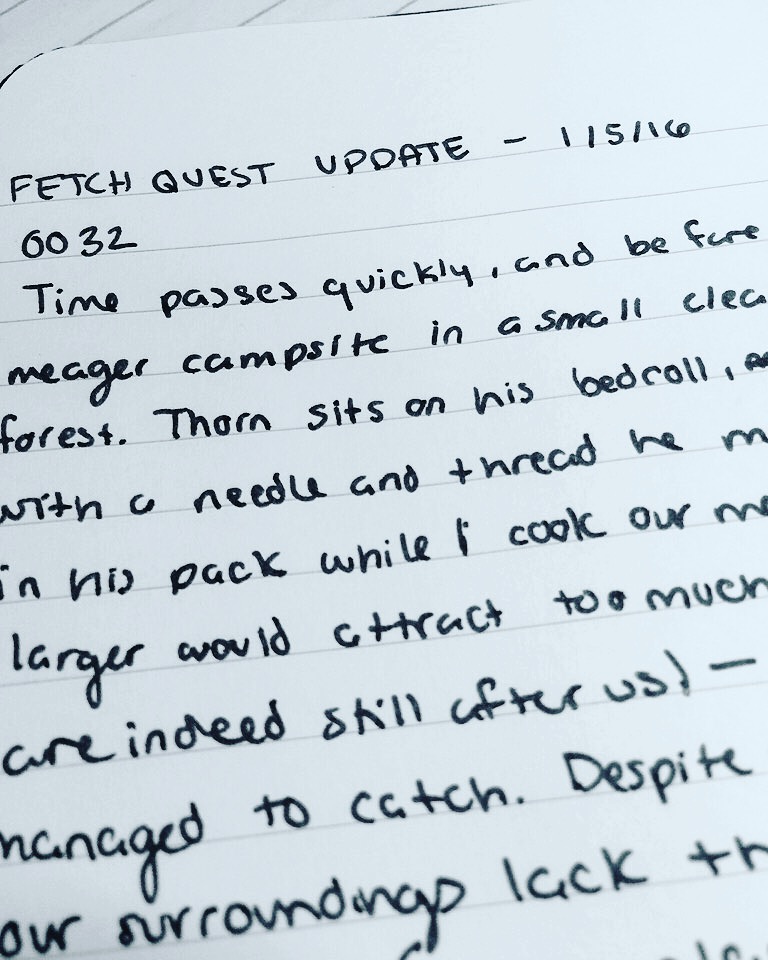 FETCH QUEST UPDATE - 1/5/16
0032
Time passes quickly, and before
meager campsite in a small clea
forest. Thorn sits on his bedroll,
with a needle and thread he m
in his pack while I cook our me
larger would attract too much
are indeed still after us) —
managed to catch. Despite
our surroundings lack th